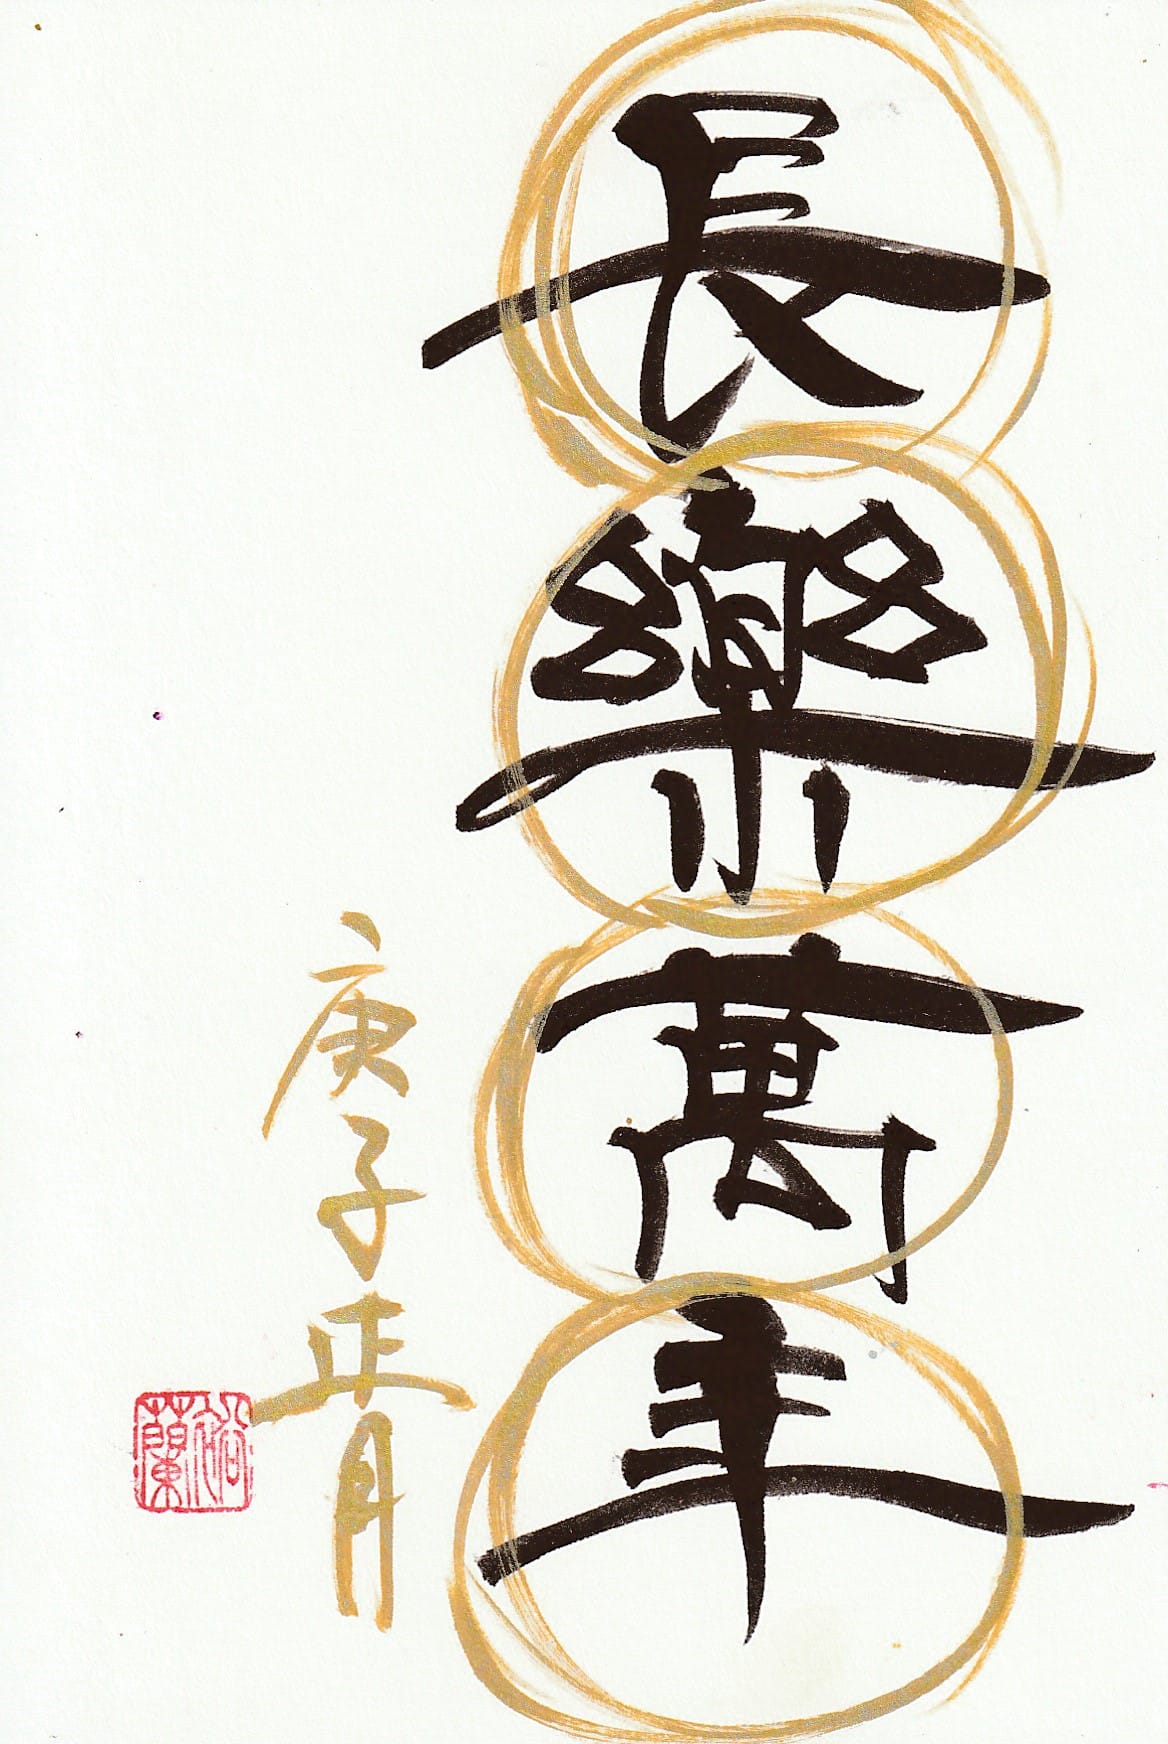 長樂萬年
庚子正月
裕蘭